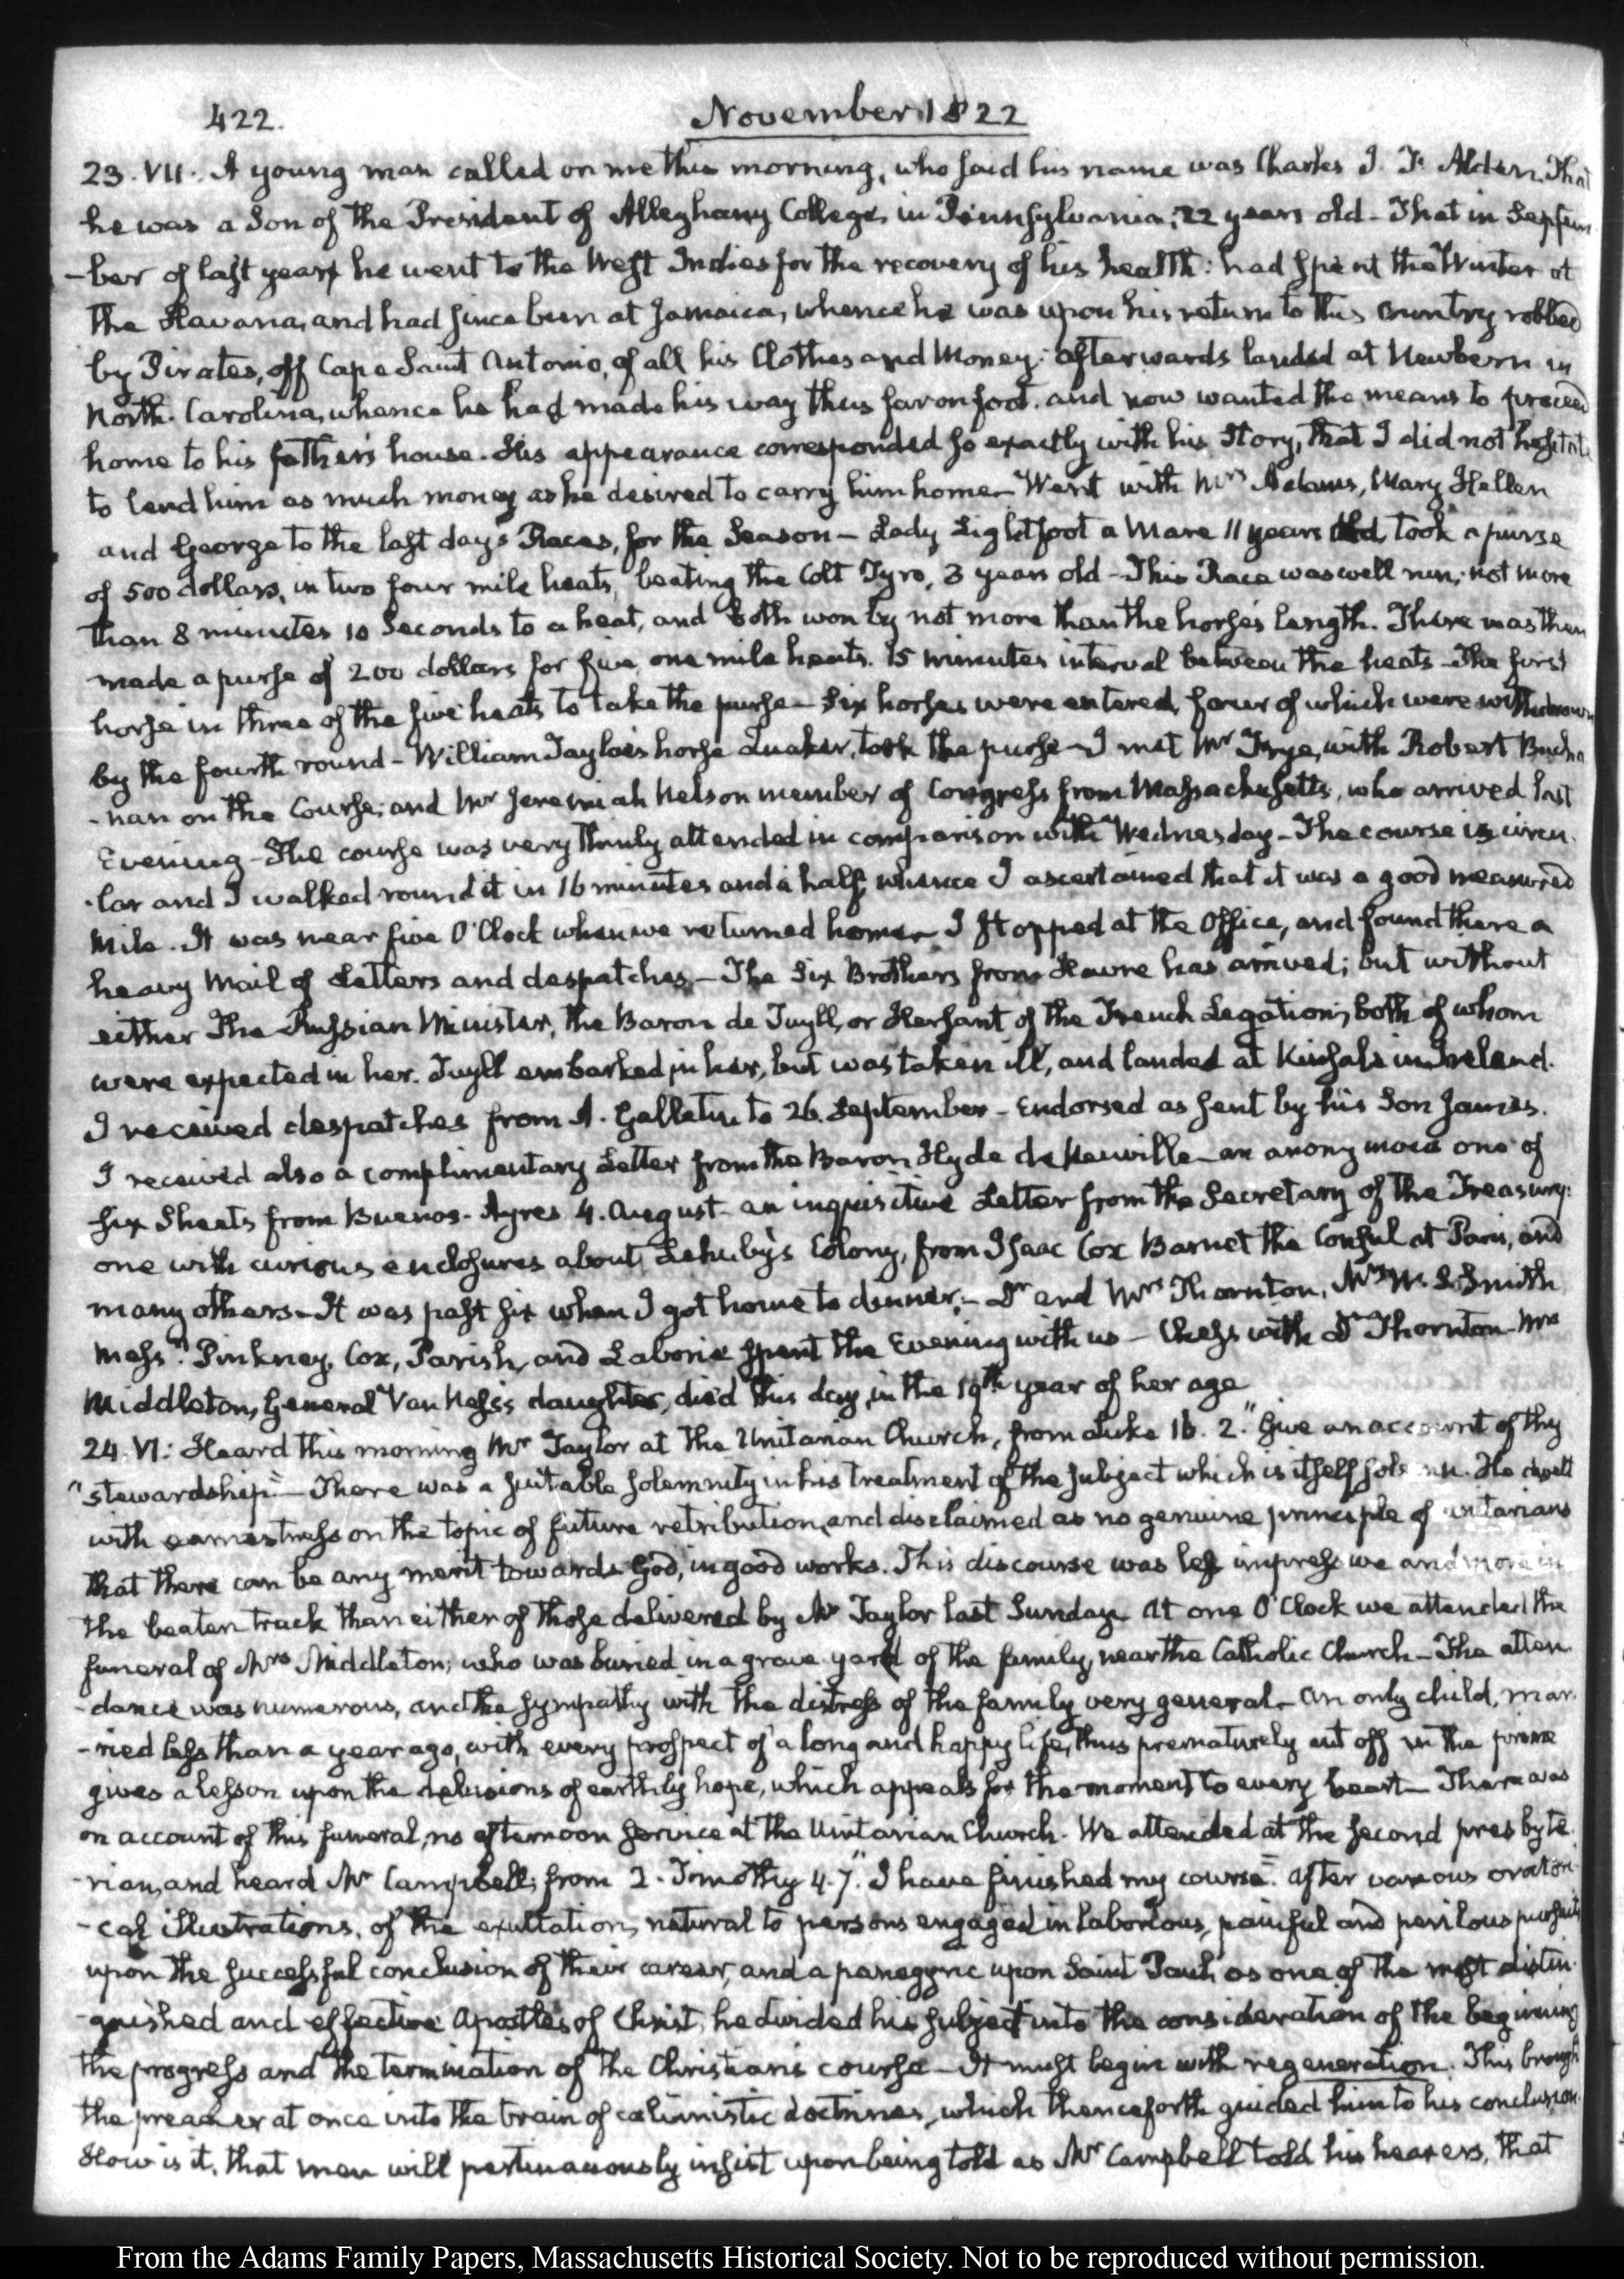 422.
November 1822
23. VII. A young man called on me this morning, who said his name was Charles J. F. Alden. That
he was a Son of the President of Alleghany College, in Pennsylvania; 22 years old - That in Septem
-ber of last year he went to the West Indies for the recovery of his health: had spent the Winter at
the Havana, and had since been at Jamaica, whence he was upon his return to this Country robbed
by Pirates, off Cape Saint Antonio, of all his Clothes and Money: afterwards landed at Newbern in
North-Carolina, whence he had made his way thus far on foot. and now wanted the means to proceed
home to his father's house. His appearance corresponded so exactly with his Story, that I did not hesitate
to lend him as much money as he desired to carry him home - Went with Mrs Adams, Mary Hellen
and George to the last day's Races, for the Season - Lady Lightfoot a Mare 11 years old, took a purse
of 500 dollars, in two four mile heats, beating the Colt Tyro, 3 years old - This Race was well run, not more
than 8 minutes 10 Seconds to a heat, and both won by not more than the horse's length. There was then
made a purse of 200 dollars for five one mile heats. 15 minutes interval between the heats - The first
horse in three of the five heats to take the purse - Six horses were entered, four of which were withdrawn
by the fourth round - William Tayloe's horse Quaker, took the purse - I met Mr Frye, with Robert Bucha
-nan on the Course; and Mr Jeremiah Nelson member of Congress from Massachusetts, who arrived last
Evening - The course was very thinly attended in comparison with Wednesday - The course is circu
-lar and I walked round it in 16 minutes and a half, whence I ascertained that it was a good measured
mile. It was near five O'Clock when we returned home - I stopped at the Office, and found there a
heavy Mail of Letters and despatches - The Six Brothers from Havre has arrived; but without
either The Russian Minister, the Baron de Tuyll, or Hersant of the French Legation; both of whom
were expected in her. Tuyll embarked in her, but was taken ill, and landed at Kinsale in Ireland.
I received despatches from A. Gallatin to 26. September - Endorsed as sent by his Son James.
I received also a complimentary Letter from the Baron Hyde de Neuville - an anonymous one of
six Sheets from Buenos-Ayres 4. August - an inquisitive Letter from the Secretary of the Treasury:
one with curious enclosures about Lehuby's Colony, from Isaac Cox Barnet the Consul at Paris, and
many others - It was past six when I got home to dinner; - Dr and Mrs Thornton, Mrs W. S. Smith
Messrs Pinkney, Cox, Parish, and Laborie spent the Evening with us - Chess with Dr Thornton - Mrs
Middleton, General Van Ness's daughter, died this day, in the 19th year of her age
24. VI: Heard this morning Mr Taylor at the Unitarian Church, from Luke 16. 2. "Give an account of thy
"stewardship." - There was a suitable solemnity in his treatment of the subject which is itself solemn. He dwelt
with earnestness on the topic of future retribution, and disclaimed as no genuine principle of unitarians
that there can be any merit towards God, in good works. This discourse was less impressive and more in
the beaten track than either of those delivered by Mr Taylor last Sunday - At one O'Clock we attended the
funeral of Mrs Middleton; who was buried in a grave yard of the family, near the Catholic Church - The atten
-dance was numerous, and the sympathy with the distress of the family very general - An only child, mar
-ried less than a year ago, with every prospect of a long and happy life, thus prematurely cut off in the prime
gives a lesson upon the delusions of earthly hope, which appeals for the moment to every heart - There was
on account of this funeral, no afternoon service at the Unitarian Church. We attended at the second presbyte
-rian, and heard Mr Campbell, from 2. Timothy 4. 7. "I have finished my course". After various oratori
-cal illustrations, of the exultation, natural to persons engaged in laborious, painful and perilous pursuits
upon the successful conclusion of their career, and a panegyric upon Saint Paul, as one of the most distin
-guished and effective Apostles of Christ, he divided his subject into the consideration of the beginning
the progress and the termination of the Christian's course - It must begin with regeneration. This brought
the preacher at once into the train of calvinistic doctrines, which thenceforth guided him to his conclusion
How is it, that men will pertinaciously insist upon being told as Mr Campbell told his hearers, that
From the Adams Family Papers, Massachusetts Historical Society. Not to be reproduced without permission.